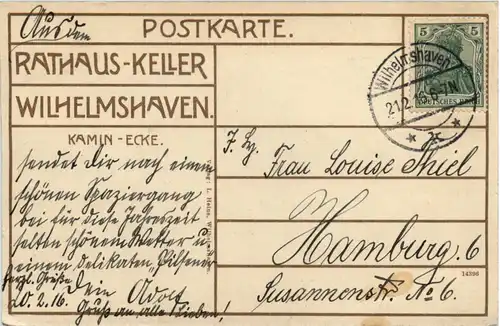 Aus dem
POSTKARTE.
RATHAUS-KELLER
WILHELMSHAVEN.
KAMIN-ECKE.
sendet Dir nach einem
schönen Spaziergang
bei für diese Jahreszeit
selten schönem Wetter u.
einem delikaten „Pilsener
herzl. Grüße
Dein Adolf
20.2.16. Gruß an alle Lieben!
5
DEUTSCHES REICH
Wilhelmshaven
21.2.16.6-7N
Frau Louise Thiel
Hamburg. 6
14396
Susannenstr. No 6.